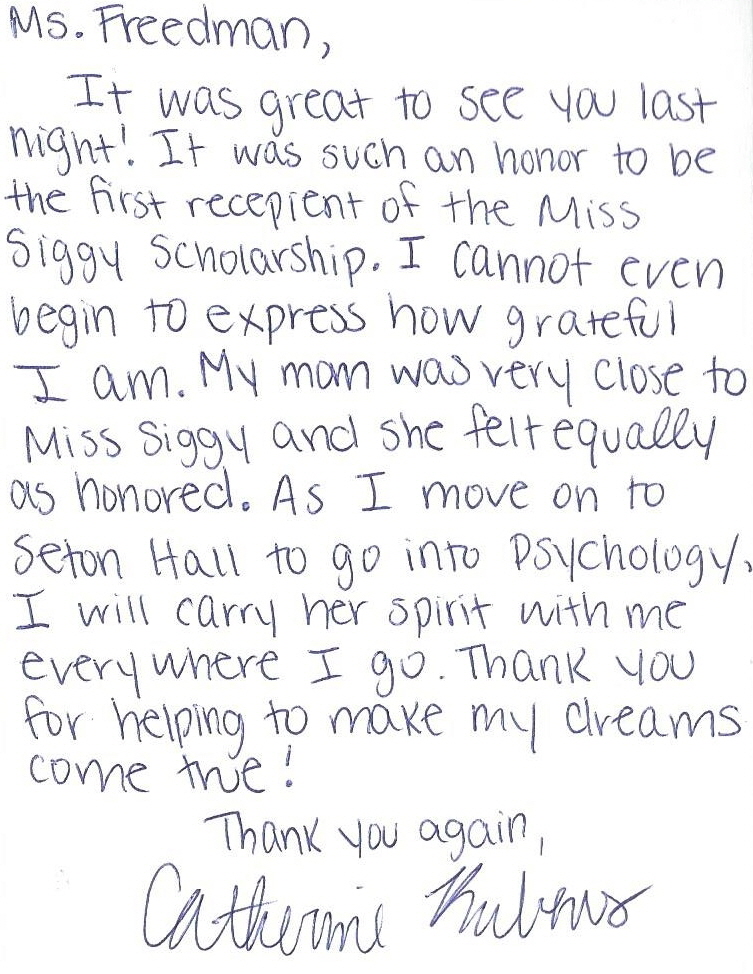 Ms. Freedman,
It was great to see you last
night! It was such an honor to be
the first recepient of the Miss
Siggy Scholarship. I cannot even
begin to express how grateful
I am. My mom was very close to
Miss Siggy and she felt equally
as honored. As I move on to
Seton Hall to go into Psychology,
I will carry her spirit with me
everywhere I go. Thank you
for helping to make my dreams
come true!
Thank you again,
Catherine